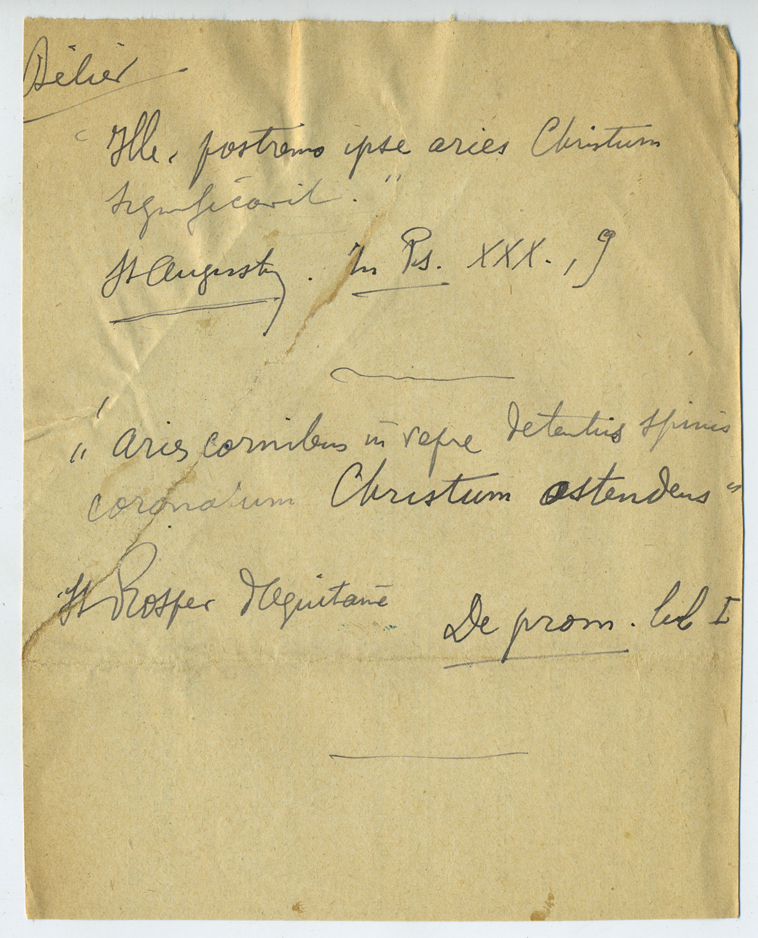 Bélier
"Ille, postremo ipse aries Christum
significavit."
St Augustin. In Ps. XXX., 9
"Aries cornibus in vepre detentus spinis
coronatum Christum ostendens"
St Prosper d'Aquitaine De prom. lib I